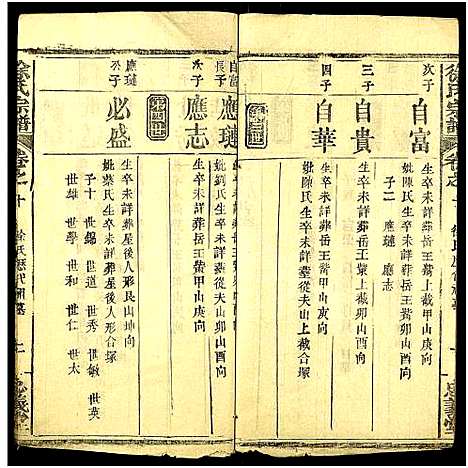 徐氏宗譜
卷之十
次子
自富
生卒未詳葬岳王觜上截甲山庚向
妣陳氏生卒未詳葬岳王觜卯山酉向
子二 應璉 應志
三子
自貴
生卒未詳葬岳王觜上截卯山酉向
四子
自華
生卒未詳葬岳王觜上截卯山酉向
妣陳氏生卒未詳葬從夫山向
自富長子
應璉
生卒未詳葬岳王觜甲山庚向
妣劉氏生卒未詳葬從夫山向
次子
應志
應璉公子
必盛
生卒未詳葬屋後人形艮山坤向
妣蔡氏生卒未詳葬屋後人形合塚
子十 世錦 世道 世秀 世敏 世英
世雄 世學 世和 世仁 世太
徐氏宗譜
卷之十
徐氏歷代
忠義堂